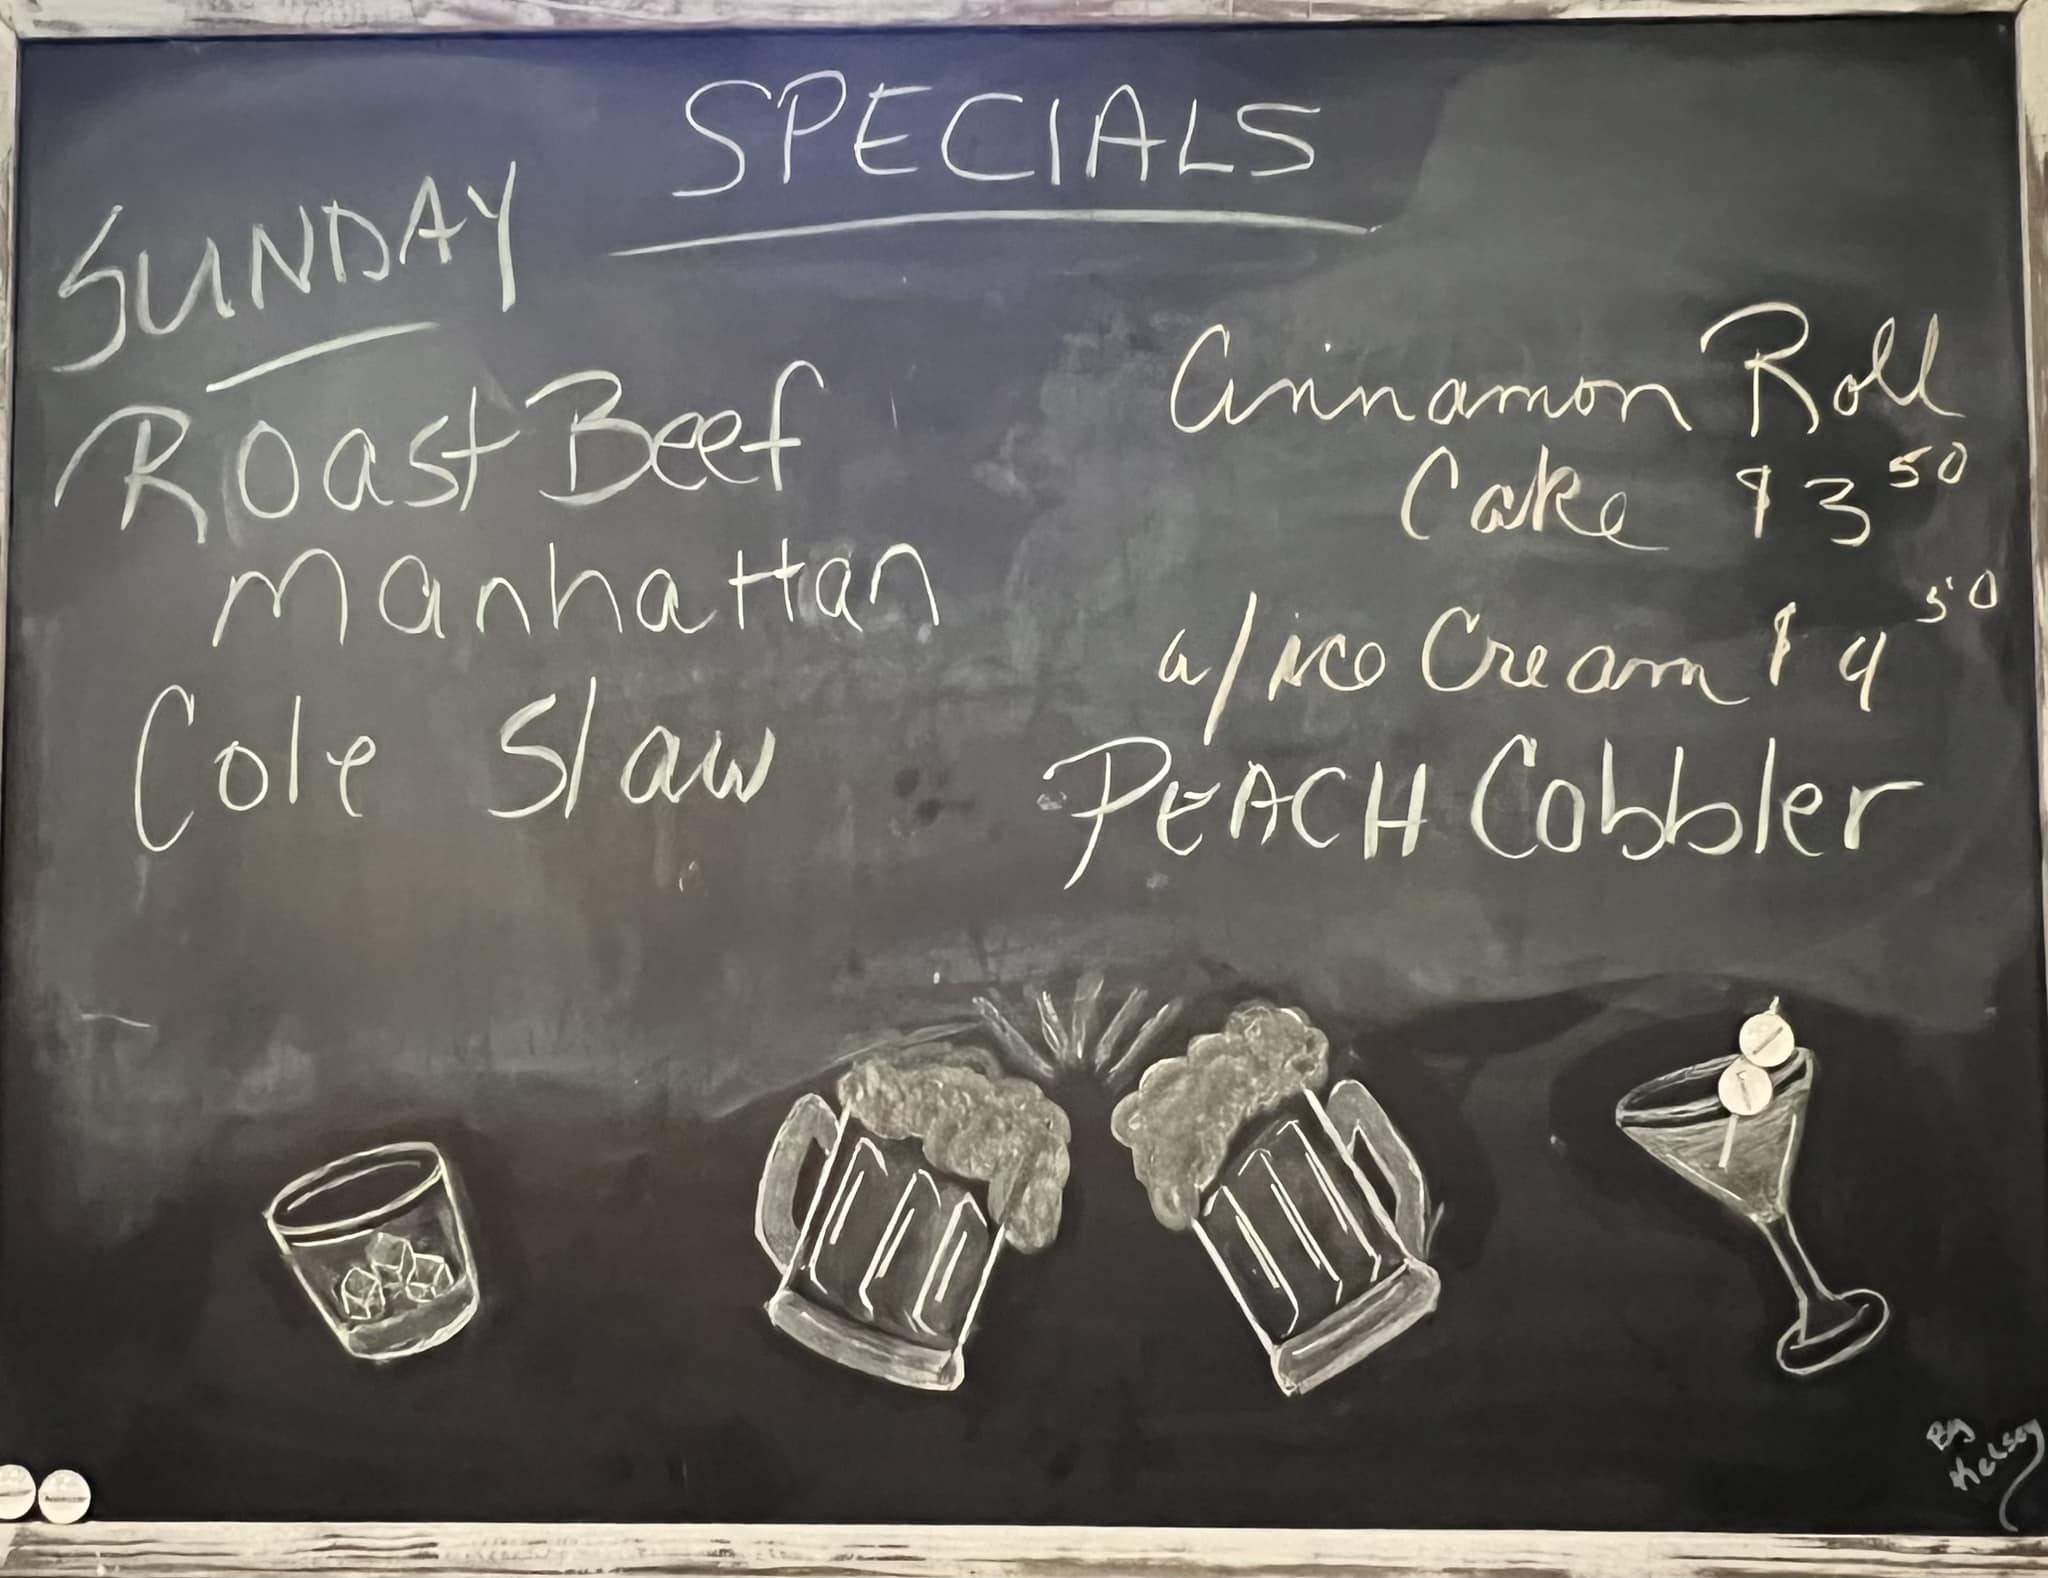 SPECIALS
SUNDAY
Roast Beef
Manhattan
Cole Slaw
Cinnamon Roll
Cake $3 50
w/ice Cream $4 50
PEACH Cobbler
By
Kelsey